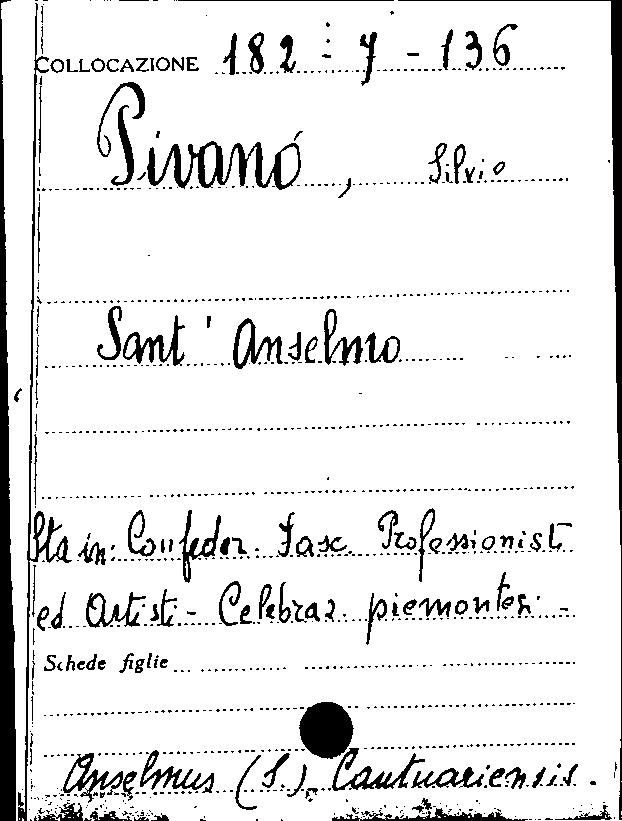 COLLOCAZIONE 182 - 7 - 136
Pivanó, Silvio
Sant' Anselmo
Sta in: Confeder. Fasc. Professionisti
ed Artisti - Celebraz. piemontesi -
Schede figlie
Anselmus (S.), Cantuariensis.